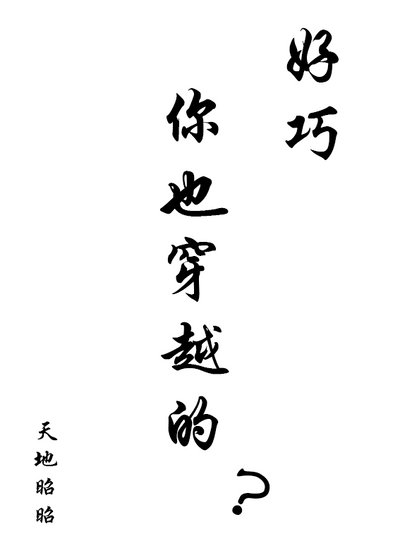 好巧
你也穿越的？
天地昭昭